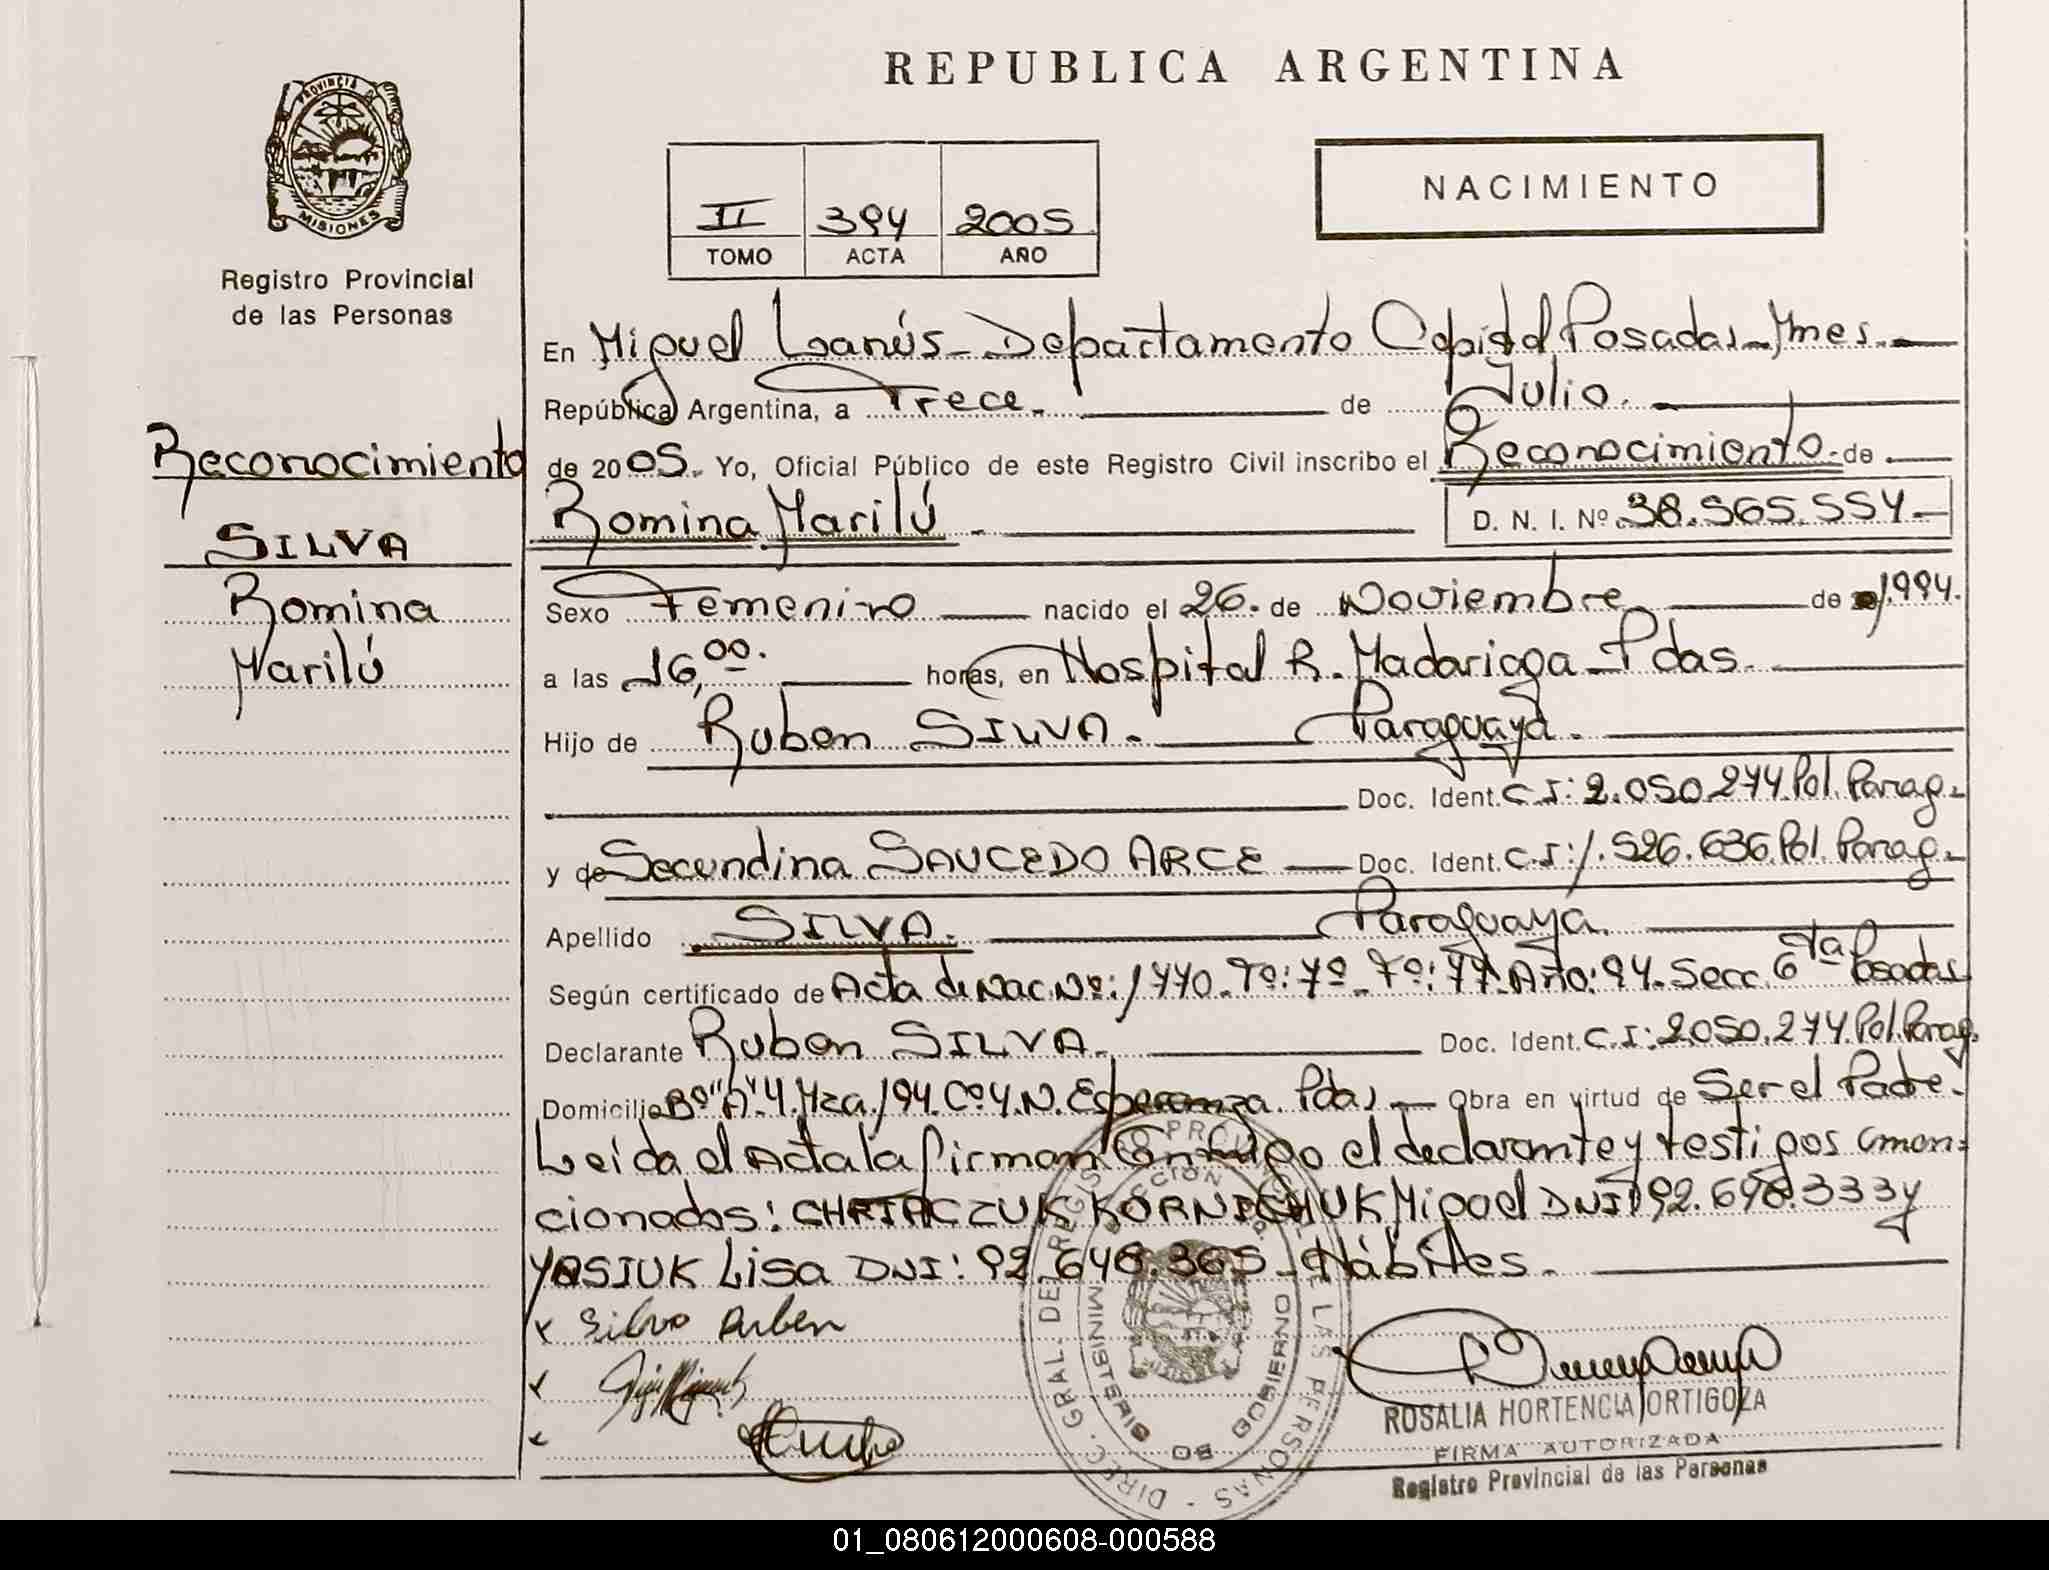 REPUBLICA ARGENTINA
PROVINCIA DE
MISIONES
Registro Provincial
de las Personas
II 394 2005
TOMO ACTA AÑO
NACIMIENTO
Reconocimiento
SILVA
Romina
Marilú
En Miguel Lanús - Departamento Capital Posadas - Mnes. -
República Argentina, a Trece. - de Julio. -
de 2005. Yo, Oficial Público de este Registro Civil inscribo el Reconocimiento. de
Romina Marilú - D. N. I. Nº 38.565.554 -
Sexo Femenino nacido el 26. de Noviembre de 1.994.
a las 16,00. horas, en Hospital R. Madariaga - Pdas.
Hijo de Ruben SILVA. - Paraguaya. -
Doc. Ident. C.I: 2.050.274 Pol. Parag. -
y de Secundina SAUCEDO ARCE - Doc. Ident. C.I: 1.526.636 Pol. Parag. -
Apellido SILVA. - Paraguaya.
Según certificado de Acta de Nac. Nº: 1770 - Tº: 7º - Fº: 77. Año: 94. Secc. 6ta Posadas
Declarante Ruben SILVA. - Doc. Ident. C.I: 2.050.274 Pol. Parag.
Domicilio Bº "A" 4. Mza. 194. Cº 4. N. Esperanza. Pdas - Obra en virtud de Ser el Padre. -
Leída el Acta la firman Conmigo el declarante y testigos (men=
cionados: KORNICHUK Miguel DNI 92.648.333 y
YASIUK Lisa DNI: 92.648.365 - Hábiles. -
x Silva Ruben
DIREC. GRAL. DEL REGISTRO PROVINCIAL DE LAS PERSONAS
MINISTERIO DE GOBIERNO
ROSALIA HORTENCIA ORTIGOZA
FIRMA AUTORIZADA
Registro Provincial de las Personas
01_080612000608-000588